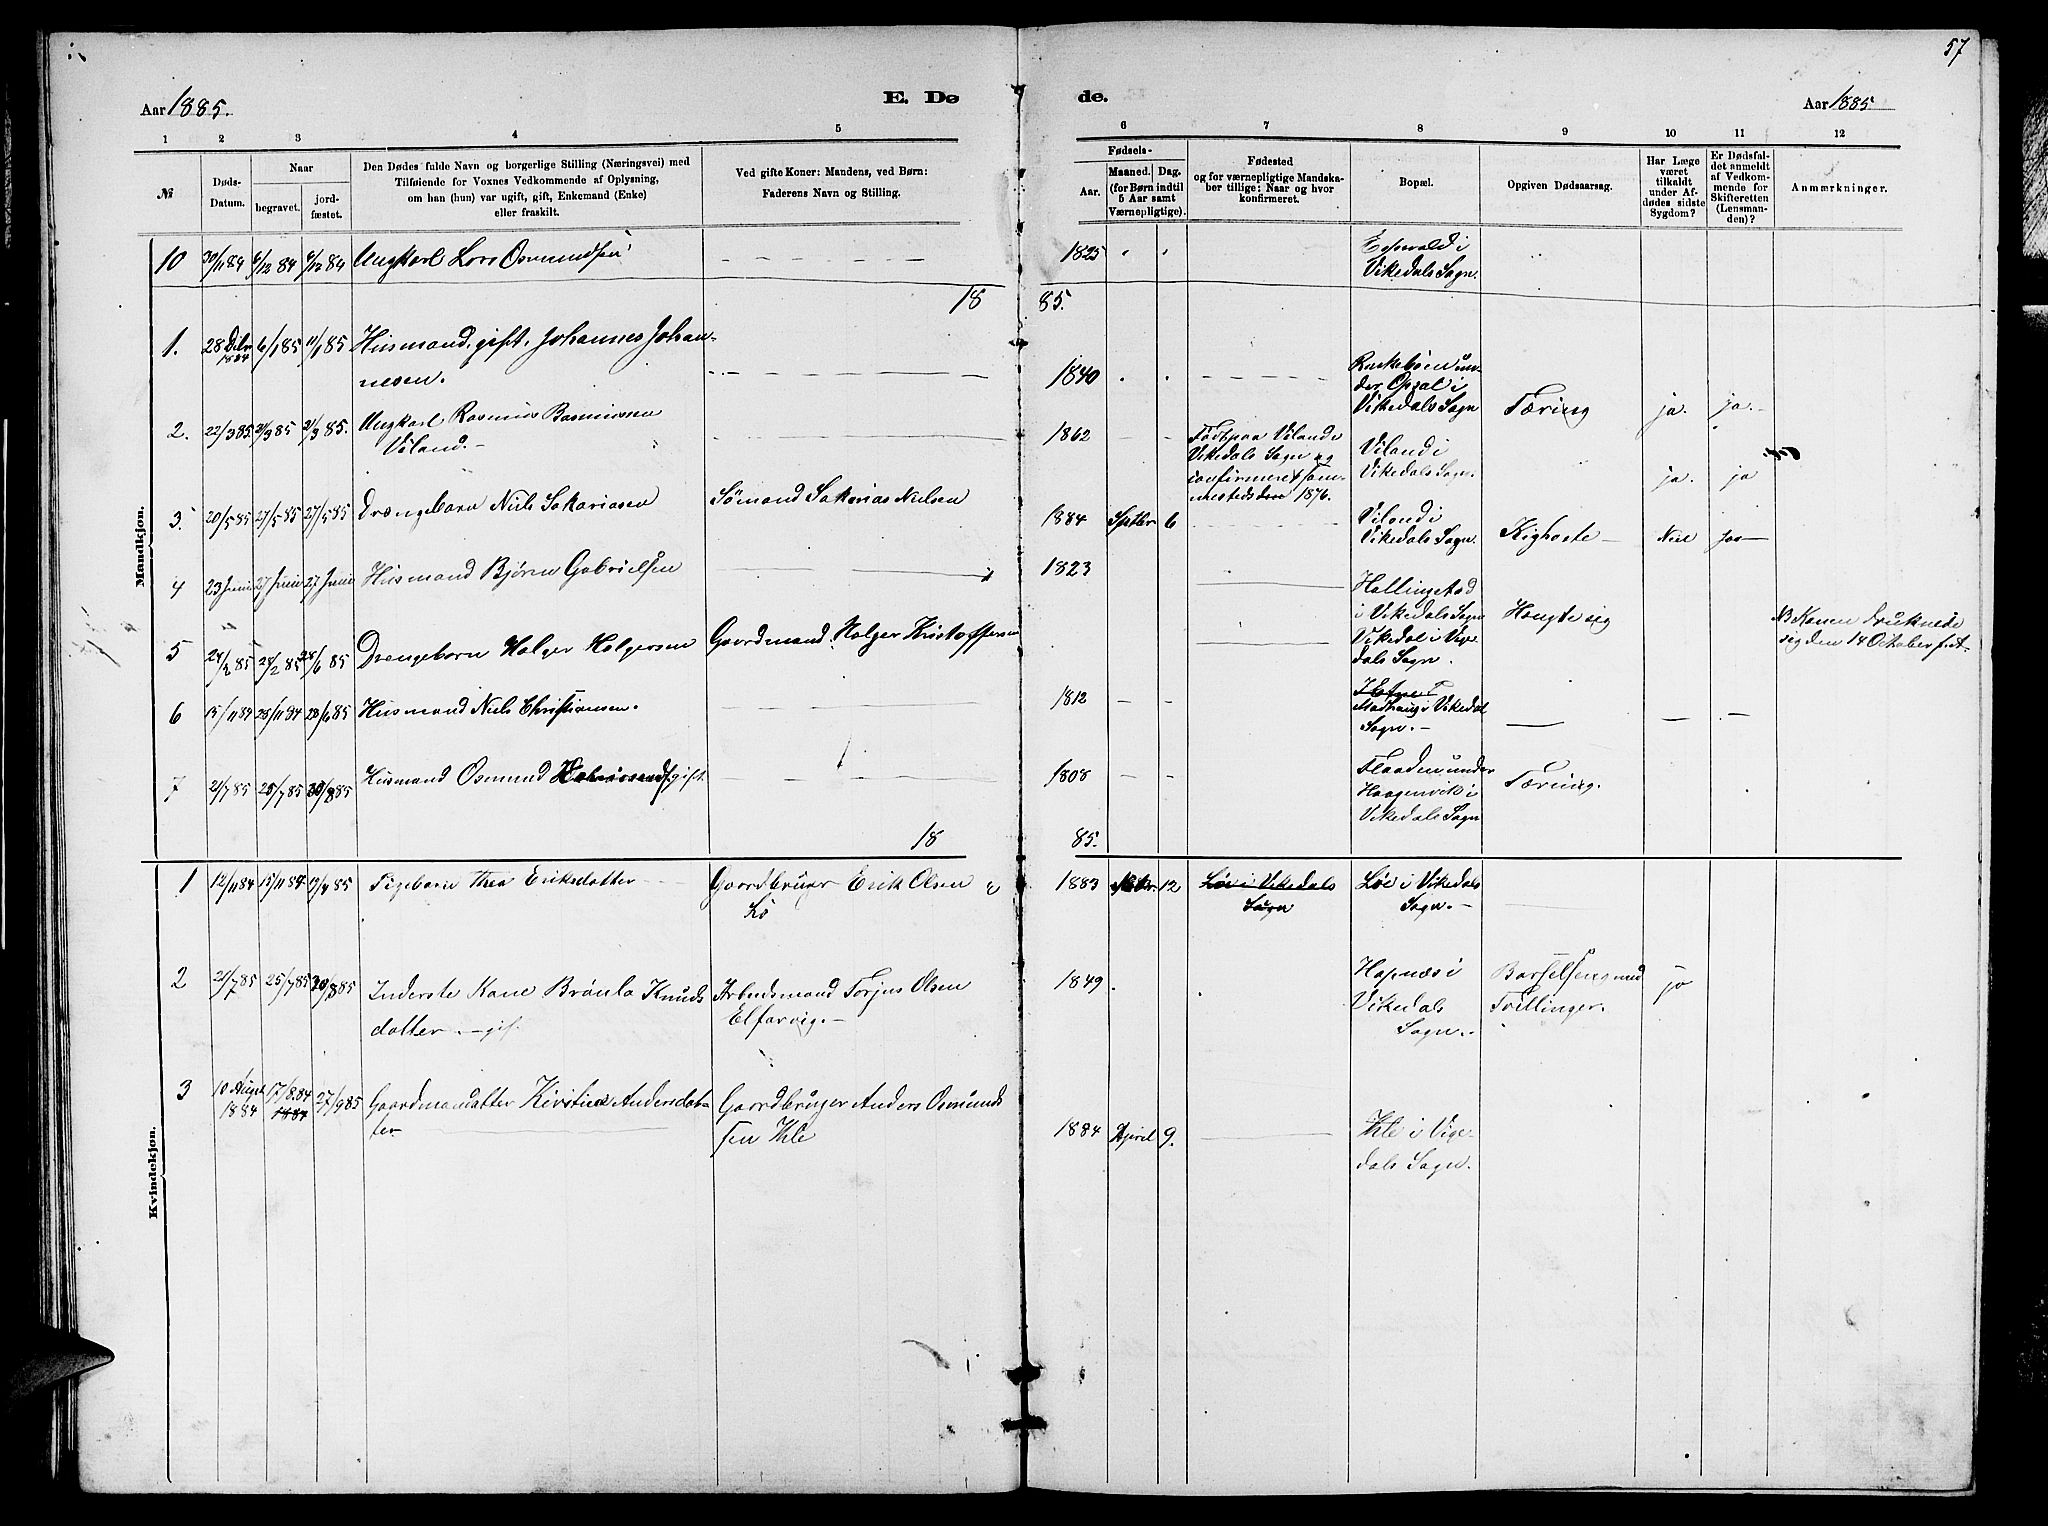 57
Aar 1885.
E. Dø
de.
Aar 1885
1 2 3 4 5
6 7 8 9 10 11 12
№
Døds-
Datum.
Naar
begravet.
jord-
fæstet.
Den Dødes fulde Navn og borgerlige Stilling (Næringsvei) med
Tilføiende for Voxnes Vedkommende af Oplysning,
om han (hun) var ugift, gift, Enkemand (Enke)
eller fraskilt.
Ved gifte Koner: Mandens, ved Børn:
Faderens Navn og Stilling.
Fødsels-
Aar.
Maaned. Dag.
(for Børn indtil
5 Aar samt
Værnepligtige).
Fødested
og for værnepligtige Mandska-
ber tillige: Naar og hvor
konfirmeret.
Bopæl.
Opgiven Dødsaarsag.
Har Læge
været
tilkaldt
under Af-
dødes sidste
Sygdom?
Er Dødsfal-
det anmeldt
af Vedkom-
mende for
Skifteretten
(Lensman-
den)?
Anmærkninger.
Mandkjøn.
10 30/11 84 6/12 84 6/12 84 Ungkarl Lars Osmundsen
1825
i
Vikedals Sogn.
18
85.
1. 28 Dcbr 1884 6/1 85 11/1 85 Husmand, gift, Johannes Johan-
nesen.
1840
under Opsal i
Vikedals Sogn
Tæring ja. ja.
2. 22/3 85. 31/3 85 31/3 85. Ungkarl Rasmus Rasmussen
Viland.
1862
Født paa Viland i
Vikedals Sogn og
confirmeret sam-
mesteds 1876.
Viland i
Vikedals Sogn.
ja. ja
3. 20/5 85 27/5 85 27/5 85 Drængebarn Niels Sakariasen
Sømand Sakarias Nielsen
1884 Septbr 6
Viland i
Vikedals Sogn.
Kighoste Nei Ja
4 23 Juni 27 Juni 27 Juni Husmand Bjørn Gabrielsen
1823
Hallingstad
i Vikedals Sogn
Hængte sig
NB Konen druknede
sig den 14 October
5 24/2 85 24/6 85 Drengebarn Holger Holgersen
Gaardmand Holger Kristoffersen
Vikedal i Vige-
dals Sogn.
6 15/11 84 28/11 84 28/6 85 Husmand Niels Christiansen.
1812
i Vikedal
Sogn.
7 21/7 85 25/7 85 30/8 85 Husmand Osmund gift.
1808
Flaaden under
Haagenvik i
Vikedals Sogn
Tæring.
18
85.
Kvindekjøn.
1 12/11 84 15/11 84 12/4 85 Pigebarn Thea Eriksdatter
Gaardbruger Erik Olsen
Lø
1883 12
Løe i Vikedals
Sogn
Løe i Vikedals
Sogn.
2 21/7 85 25/7 85 30/8 85 Inderste Kone Brønla Knuds
datter gift
Arbeidsmand Torjus Olsen
Elfarvig.
1849
Hapnæs i
Vikedals
Sogn.
Barselseng med
Trillinger.
ja
3 10 August 1884 17/8 84 1884 27/9 85 Gaardmandatter Kirstine Andersdat-
ter
Gaardbruger Anders Osmund
sen Ihle
1884 April 9.
Ihle i Vige-
dals Sogn.